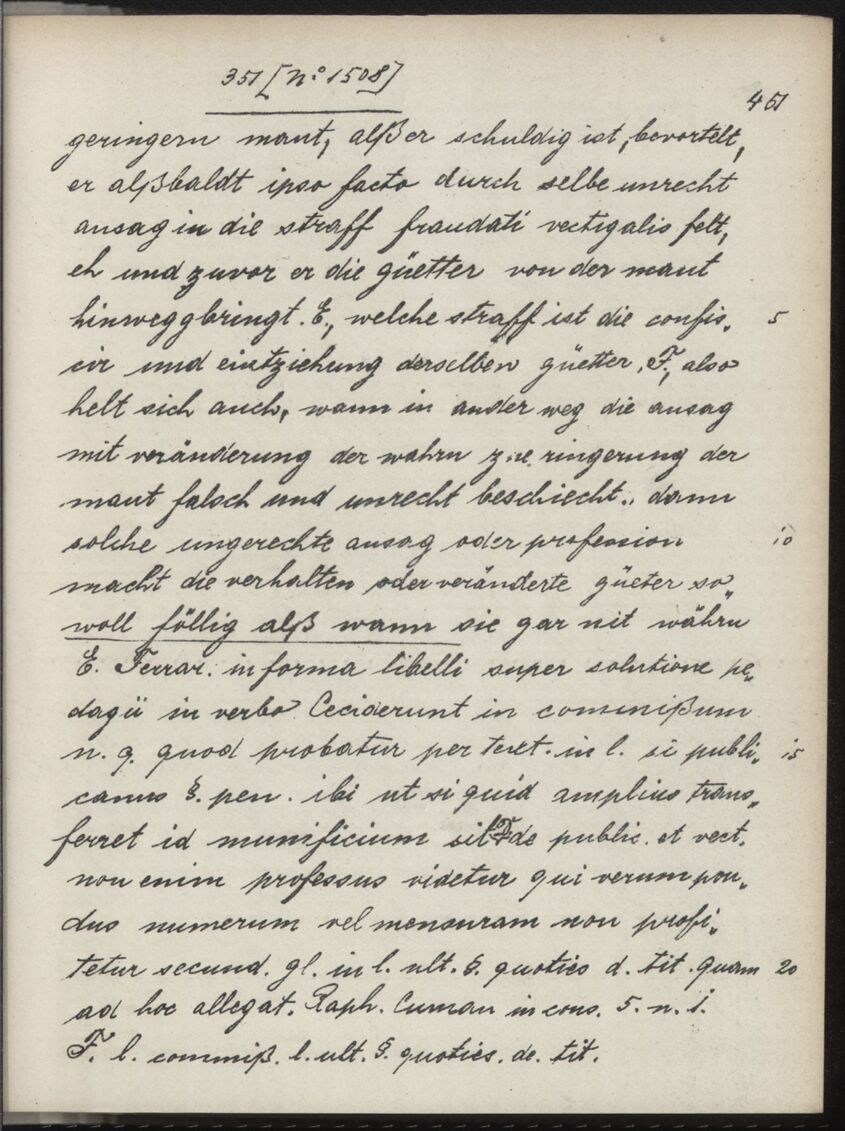 351 [No. 1508]
451
geringern maut, alßer schuldig ist, bevortelt,
er alßbaldt ipso facto durch selbe unrecht
ansag in die straff fraudati vectigalis felt,
eh und zuvor er die güetter von der maut
hinweggbringt. E., welche straff ist die confis„ 5
cir und eintziehung derselben güetter, F., also
helt sich auch, wann in ander weg die ansag
mit veränderung der wahrn zue ringerung der
maut falsch und unrecht beschiecht., dann
solche ungerechte ansag oder profession 10
macht die verhalten oder veränderte güeter so„
woll föllig alß wann sie gar nit währn
E. Ferrar. in forma libelli super solutione pe„
dagii in verbo Ceciderunt in commißum
n. 9. quod probatur per text. in l. si publi„ 15
canus §. pen. ibi ut si quid amplius trans„
ferret id munificium sit F de public. et vect.
non enim professus videtur qui verum pon„
dus numerum vel mensuram non profi„
tetur secund. gl. in l. ult. §. quoties d. tit. quam 20
ad hoc allegat. Raph. Cuman in cons. 5. n. i.
F. l. commiß. l. ult. §. quoties. de. tit.